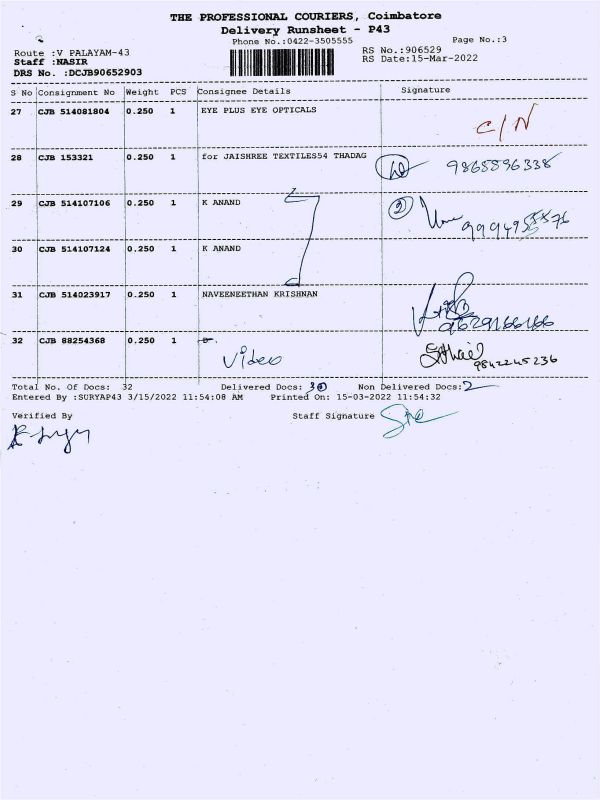 THE PROFESSIONAL COURIERS, Coimbatore
Delivery Runsheet - P43
Phone No.:0422-3505555 Page No.:3
Route :V PALAYAM-43 RS No.:906529
Staff :NASIR RS Date:15-Mar-2022
DRS No. :DCJB90652903
S No Consignment No Weight PCS Consignee Details Signature
27 CJB 514081804 0.250 1 EYE PLUS EYE OPTICALS C/N
28 CJB 153321 0.250 1 for JAISHREE TEXTILES54 THADAG 9865896338
29 CJB 514107106 0.250 1 K ANAND 2
30 CJB 514107124 0.250 1 K ANAND
31 CJB 514023917 0.250 1 NAVEENEETHAN KRISHNAN 9629166166
32 CJB 88254368 0.250 1 Video 9842245236
Total No. Of Docs: 32 Delivered Docs: 30 Non Delivered Docs: 2
Entered By :SURYAP43 3/15/2022 11:54:08 AM Printed On: 15-03-2022 11:54:32
Verified By Staff Signature